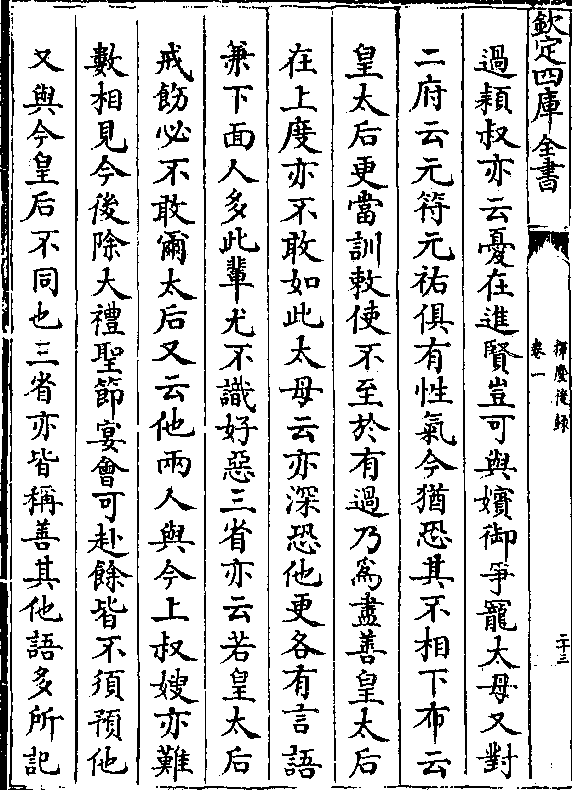 欽定四庫全書
揮麈後録
卷一
二十三
過穎叔亦云憂在進賢豈可與嬪御爭寵太母又對
二府云元符元祐俱有性氣今猶恐其不相下布云
皇太后更當訓敕使不至於有過乃為盡善皇太后
在上度亦不敢如此太母云亦深恐他更各有言語
兼下面人多此輩尤不識好惡三省亦云若皇太后
戒飭必不敢爾太后又云他兩人與今上叔嫂亦難
數相見今後除大禮聖節宴會可赴餘皆不須預他
又與今皇后不同也三省亦皆稱善其他語多所記